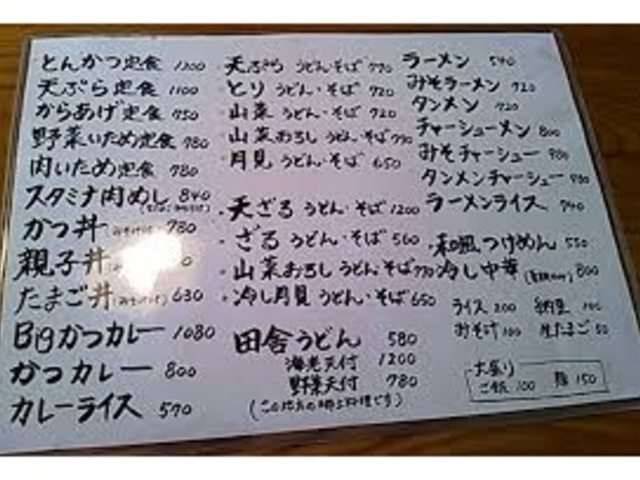 とんかつ定食 1200
天ぷら定食 1100
からあげ定食 750
野菜いため定食 780
肉いため定食 780
スタミナ肉めし 840
かつ丼 780
親子丼
たまご丼 630
Bigかつカレー 1080
かつカレー 800
カレーライス 570
・天ぷら うどん・そば 770
・とり うどん・そば 720
・山菜 うどん・そば 720
・山菜おろし うどん・そば 770
・月見 うどん・そば 650
・天ざる うどん・そば 1200
・ざる うどん・そば 560
・山菜おろし うどん・そば 770
・冷し月見 うどん・そば 650
田舎うどん 580
海老天付 1200
野菜天付 780
(この地元の郷土料理です)
ラーメン 540
みそラーメン 720
タンメン 720
チャーシューメン 800
みそチャーシュー 980
タンメンチャーシュー 980
ラーメンライス 740
・和風つけめん 550
冷し中華 800
ライス 200 納豆 100
おみそ汁 100 生たまご 50
大盛り
ご飯 100 麺 150